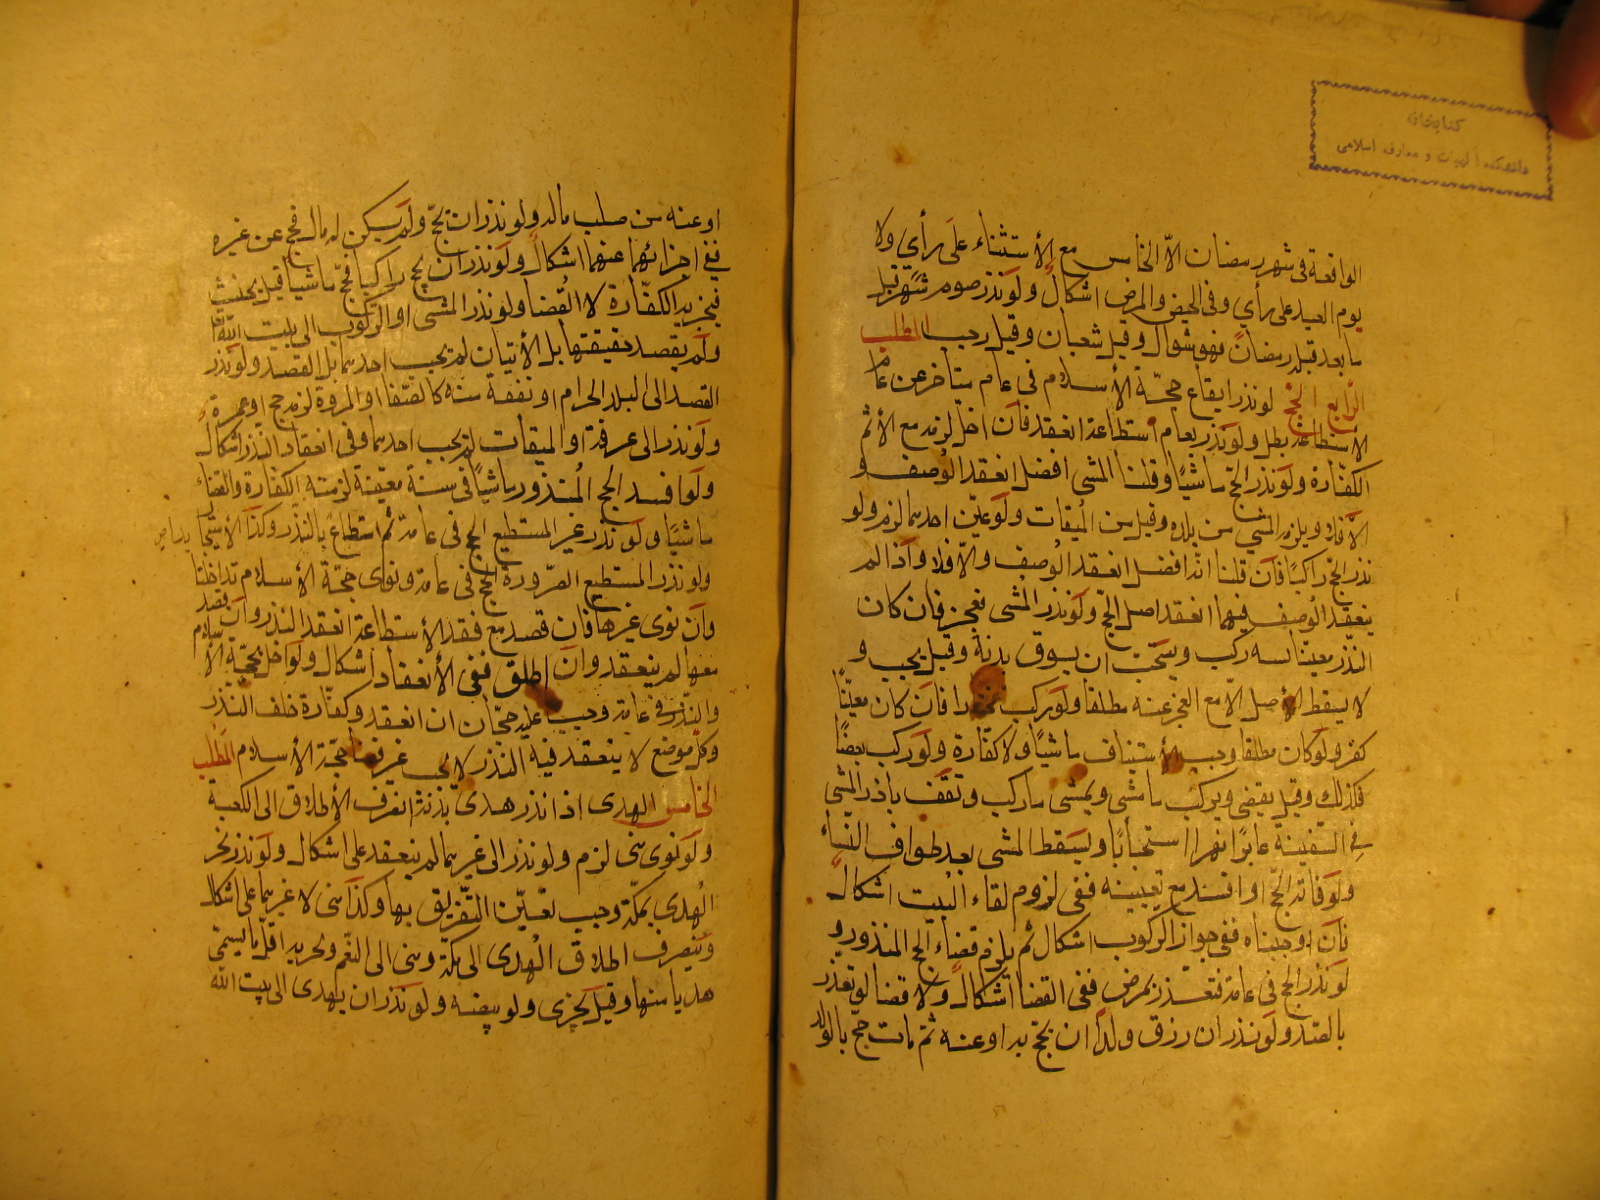 كتابخانه
دانشكده الهيات و معارف اسلامى
الواقعة فى شهر رمضان الّا الخامس مع الأستثناء على رأي ولا
يوم العيد على رأي وفى الحيض والمرض اشكال ولو نذر صوم شهر قبل
ما بعد قبله رمضان فهو شوال وقيل شعبان وقيل رجب المطلب
الرابع الحج لو نذر ايقاع حجّة الأسلام فى عام متأخر عن عام
الأستطاعة بطل ولو نذر بعام استطاعة انعقد فان اخلّ لزمه مع الأثم
الكفّارة ولو نذر الحج ماشيًا وقلنا المشى افضل انعقد الوصف و
الّا فلا ويلزمه المشي من بلده وقيل من الميقات ولو عيّن احدهما لزم ولو
نذر الحج راكبًا فان قلنا انّه افضل انعقد الوصف والّا فلا واذا لم
ينعقد الوصف فيهما انعقد اصل الحجّ ولو نذر المشى فعجز فان كان
النذر معيّنا بسنة ركب ويستحبّ ان يسوق بدنة وقيل يجب و
لا يسقط الأصل الّا مع العجز عنه مطلقا ولو ركب مختارا فان كان معيّنًا
كفر ولو كان مطلقا وجب الأستيناف ماشيًا ولا كفّارة ولو ركب بعضًا
فكذلك وقيل يقضى ويركب ما مشى ويمشى ما ركب وتقف ناذر المشى
في السّفينة عابرًا نهرا استحبابًا ويسقط المشى بعد طواف النّساء
ولو فاته الحجّ او افسده مع تعيينه ففى لزوم لقاء البيت اشكال
فان اوجبناه ففى جواز الركوب اشكال ثم يلزم قضاء الحج المنذور و
لو نذر الحج فى عامه فتعذّر بمرض ففى القضا اشكال ولا قضا لو تعذر
بالصد ولو نذر ان رزق ولدًا ان يحج به او عنه ثم مات حجّ بالولد
او عنه من صلب ماله ولو نذر ان يحجّ ولم يكن له مال فحج عن غيره
ففي اجزائهما عنهما اشكال ولو نذر ان يحج راكبا فحجّ ماشيا قيل يحنث
فيجزيه الكفّارة لا القضا ولو نذر المشى او الركوب الى بيت اللّه
ولم يقصد حقيقتها بل الأتيان لم يجب احدهما بل القصد ولو نذر
القصد الى البلد الحرام او نفقة منه كالصّفا او المروة لزمه حج او عمرة
ولو نذر الى عرفة او الميقات لم يجب احدهما وفى انعقاد النّذر اشكال
ولو افسد الحج المنذور ماشيًا فى سنة معيّنة لزمته الكفارة والقضاء
ماشيًا ولو نذر غير المستطيع الحج فى عامه ثم استطاع بالنّذر وكذا
ولو نذر المستطيع الصّرورة الحج فى عامه ونوى حجّة الأسلام تداخلتا
وان نوى غيرها فان قصد مع فقد الأستطاعة انعقد النذر وان قصد
معها لم ينعقد وان اطلق ففى الأنعقاد اشكال ولو اخل بحجّة الأسلام
والنّذر فى عامه وجب عليه حجّتان ان انعقد وكفّارة خلف النّذر
وكلّ موضع لا ينعقد فيه النّذر لا يجب غير قضا حجّة الأسلام المطلب
الخامس الهدى اذا نذر هدى بدنة انصرف الأطلاق الى الكعبة
ولو نوى منى لزم ولو نذر الى غيرهما لم ينعقد على اشكال ولو نذر نحر
الهدى بمكّة وجب تعيّن التّفريق بها وكذا منى لا غيرهما على اشكال
وينصرف اطلاق الهدى الى مكّة ومنى الى النّعم ويجزيه اقلّ ما يسمّى
هديا منها وقيل يجزى ولو بيضة ولو نذر ان يهدى الى بيت اللّه